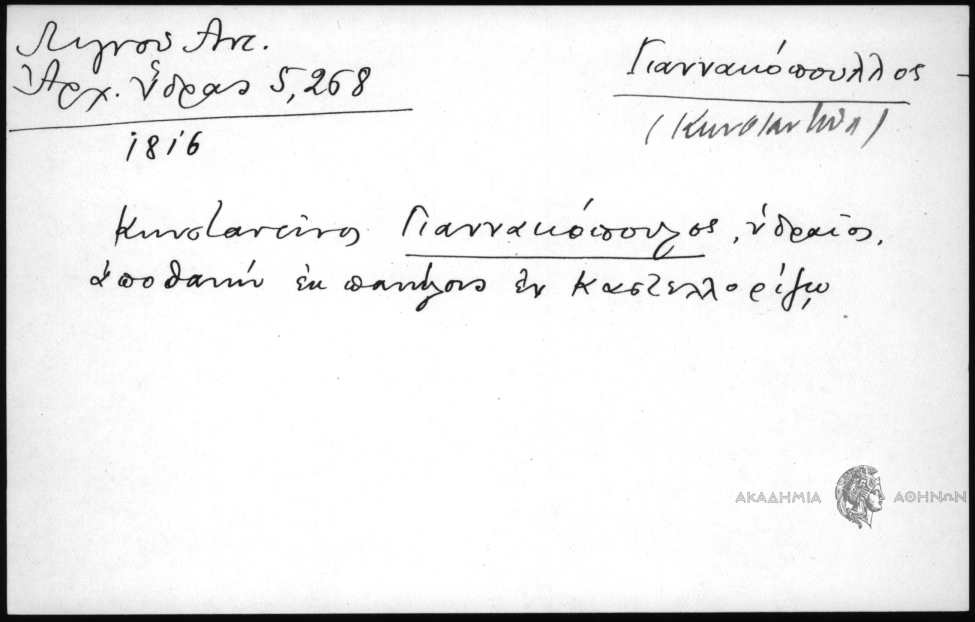 Λιγνού Αντ.
Αρχ. Ύδρας 5,268
1816
Γιαννακόπουλλος
(Κωνσταντίνος)
Κωνσταντίνος Γιαννακόπουλος, υδραίος,
αποθανών εκ πανώλης εν Καστελλορίζω
ΑΚΑΔΗΜΙΑ ΑΘΗΝΩΝ